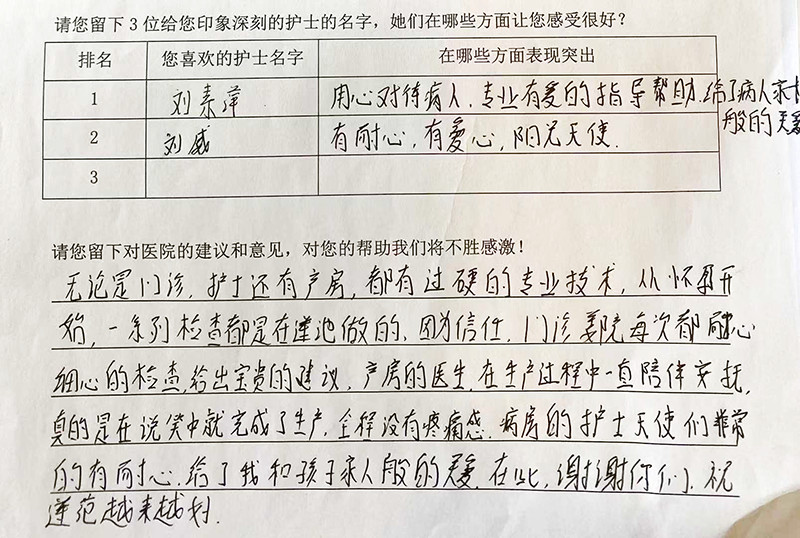 请您留下 3 位给您印象深刻的护士的名字，她们在哪些方面让您感受很好？
排名 您喜欢的护士名字 在哪些方面表现突出
1 刘素萍 用心对待病人，专业有爱的指导帮助.给了病人家人
般的关爱
2 刘威 有耐心，有爱心，阳光天使.
3
请您留下对医院的建议和意见，对您的帮助我们将不胜感激！
无论是门诊，护士还有产房，都有过硬的专业技术，从怀孕开
始，一系列检查都是在莲池做的，因为信任，门诊姜院每次都耐心
细心的检查，给出宝贵的建议，产房的医生，在生产过程中一直陪伴安抚，
真的是在说笑中就完成了生产，全程没有疼痛感.病房的护士天使们非常
的有耐心，给了我和孩子家人般的关爱，在此，谢谢你们，祝
莲池越来越好.